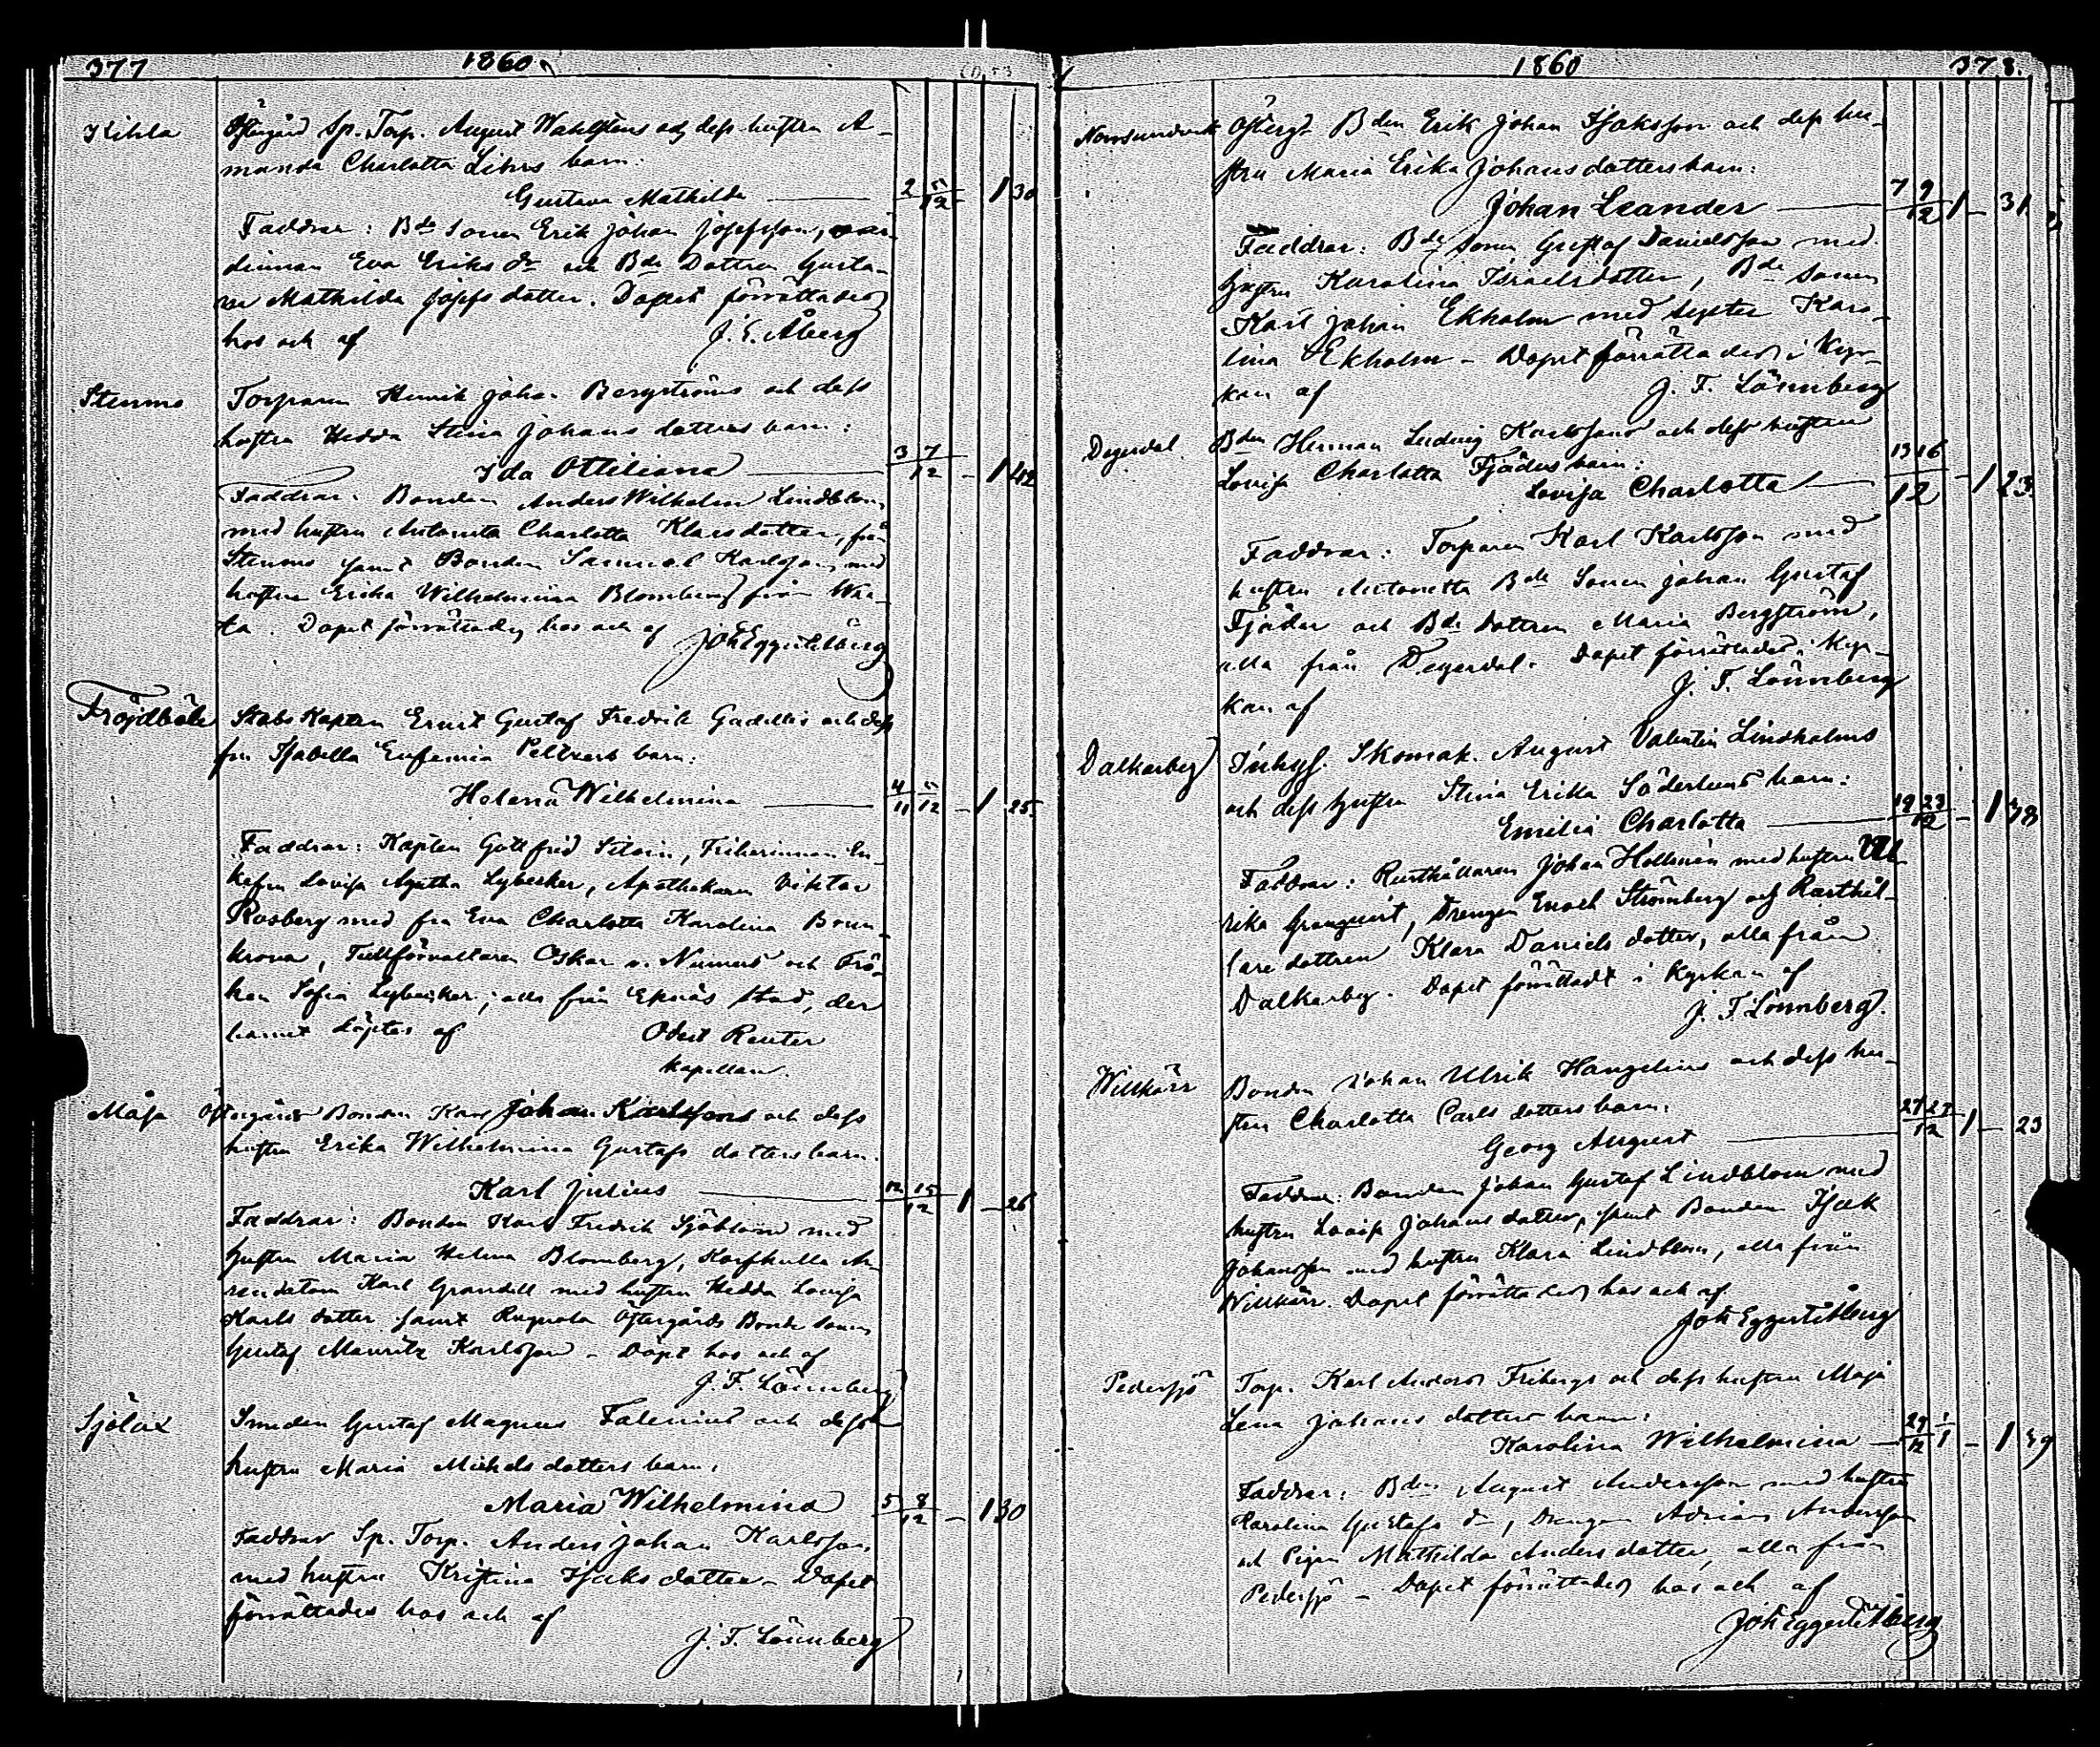 377
1860
Kihla
Östergård Sp. Torp. August Wahlstens och dess hustru A-
manda Charlotta Libers barn:
Gustava Mathilda
2 5/12 1 30
Faddrar: Bde Sonen Erik Johan Josefsson,
dinnan Eva Eriks dr och Bde Dottren Gusta-
va Mathilda Josefsdotter. Dopet förrättades
hos och af J. E. Åberg
Stenmo
Torparen Henrik Johan Bergströms och dess
hustru Hedda Stina Johans dotters barn:
Ida Ottiliana
3 7/12 - 1 42
Faddrar: Bonden Anders Wilhelm Lindblom
med hustru Antonetta Charlotta Klasdotter, från
Stenmo samt Bonden Samuel Karlsson med
hustru Ericka Wilhelmina Blomberg från Wre-
ta. Dopet förrättades hos och af
Joh Eggert Åberg
Fröjdböle
Stabs Kapten Ernst Gustaf Fredrik Gadillis och dess
fru Isabella Eufemia Peltzers barn:
Helena Wilhelmina
4/11 5/12 - 1 25.
Faddrar: Kapten Gottfrid Silvin, Friherinnan En-
kefru Lovisa Agatha Lybecker, Apothekaren Viktor
Rosberg med fru Eva Charlotta Karolina Brun-
krona, Tullförvaltaren Oskar v. Numers och Frö-
ken Sofia Lybecker; alla från Ekenäs stad, der
barnet döptes af Odert Reuter
Kapellan.
Måsa
Östergårds Bonden Karl Johan Karlssons och dess
hustru Erika Wilhelmina Gustafs dotters barn.
Karl Julius
12 15/12 1 - 26
Faddrar: Bonden Karl Fredrik Sjöblom med
hustru Maria Helena Blomberg, Korfkulla Ar-
rendatorn Karl Grandell med hustru Hedda Lovisa
Karls dotter samt Rugnola Östergårds Bonde Sonen
Gustaf Mauritz Karlsson - Döpt hos och af
J. F. Lönnberg
Sjölax
Smeden Gustaf Magnus Falenius och dess
hustru Maria Mickels dotters barn.
Maria Wilhelmina
5 8/12 - 1 30
Faddrar Sp. Torp. Anders Johan Karlsson
med hustru Kristina Isaks dotter - Dopet
förrättades hos och af
J. F. Lönnberg
1860
378.
Norrsundvik
Östergs Bden Erik Johan Isaksson och dess hu-
stru Maria Erika Johansdotters barn:
Johan Leander
7 9/12 1 - 31
Faddrar: Bde Sonen Gustaf Danielsson med
hustru Karolina Israelsdotter, Bde Sonen
Karl Johan Ekholm med syster Karo-
lina Ekholm - Dopet förrättades i Kyr-
kan af J. F. Lönnberg
Degerdal.
Bden Herman Ludvig Karlssons och dess hustru
Lovisa Charlotta Fjäders barn:
Lovisa Charlotta
13 16/12 - 1 23.
Faddrar: Torparen Karl Karlsson med
hustru Antonetta Bde Sonen Johan Gustaf
Fjäder och Bde dottren Maria Bergström,
alla från Degerdal. Dopet förrättades i Kyr-
kan af J. F. Lönnberg
Dalkarby
Inhys. Skomak. August Valentin Lindholms
och dess hustru Stina Erika Söderlunds barn:
Emilia Charlotta
19 23/12 - 1 38
Faddrar: Rusthållaren Johan Hollmén med hustru Ul-
rika Granqvist, Drengen Enoch Strömberg och Rusthål-
lare dottren Klara Daniels dotter, alla från
Dalkarby. Dopet förrättadt i Kyrkan af
J. F. Lönnberg.
Willkärr
Bonden Johan Ulrik Hangelins och dess hu-
stru Charlotta Carls dotters barn.
Georg August
27 27/12 1 - 23
Faddrar: Bonden Johan Gustaf Lindblom med
hustru Lovisa Johans dotter, samt Bonden Isak
Johansson med hustru Klara Lindblom, alla från
Willkärr. Dopet förrättades hos och af
Joh Eggert Åberg
Pedersjö
Torp. Karl Anders Fribergs och dess hustru Maja
Lena Johans dotters barn:
Karolina Wilhelmina
29/12 1/1 - 1 39
Faddrar: Bden August Andersson med hustru
Karolina Gustafs dr, Drengen Adrian Andersson
och Pigan Mathilda Anders dotter, alla från
Pedersjö - Dopet förrättades hos och af
Joh Eggert Åberg